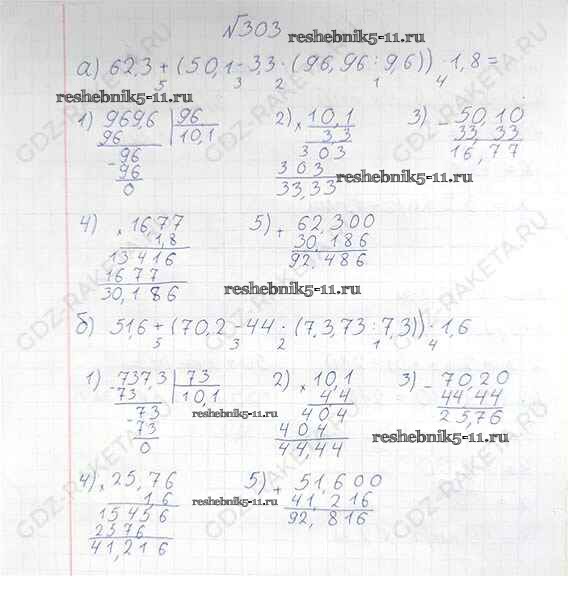 №303
reshebnik5-11.ru
а) 62,3 + (50,1 - 3,3 · (96,96 : 9,6)) · 1,8 =
5 3 2 1 4
reshebnik5-11.ru
1) 969,6 | 96
96 10,1
- 96
96
0
2) × 10,1
3,3
303
303
33,33
3) - 50,10
33,33
16,77
reshebnik5-11.ru
4) × 16,77
1,8
13416
1677
30,186
5) + 62,300
30,186
92,486
reshebnik5-11.ru
б) 51,6 + (70,2 - 44 · (7,3,73 : 7,3)) · 1,6
5 3 2 1 4
1) - 737,3 | 73
73 10,1
- 73
73
0
reshebnik5-11.ru
2) × 10,1
4,4
404
404
44,44
3) - 70,20
44,44
25,76
reshebnik5-11.ru
4) × 25,76
1,6
15456
2576
41,216
reshebnik5-11.ru
5) + 51,600
41,216
92,816
GDZ-RAKETA.RU